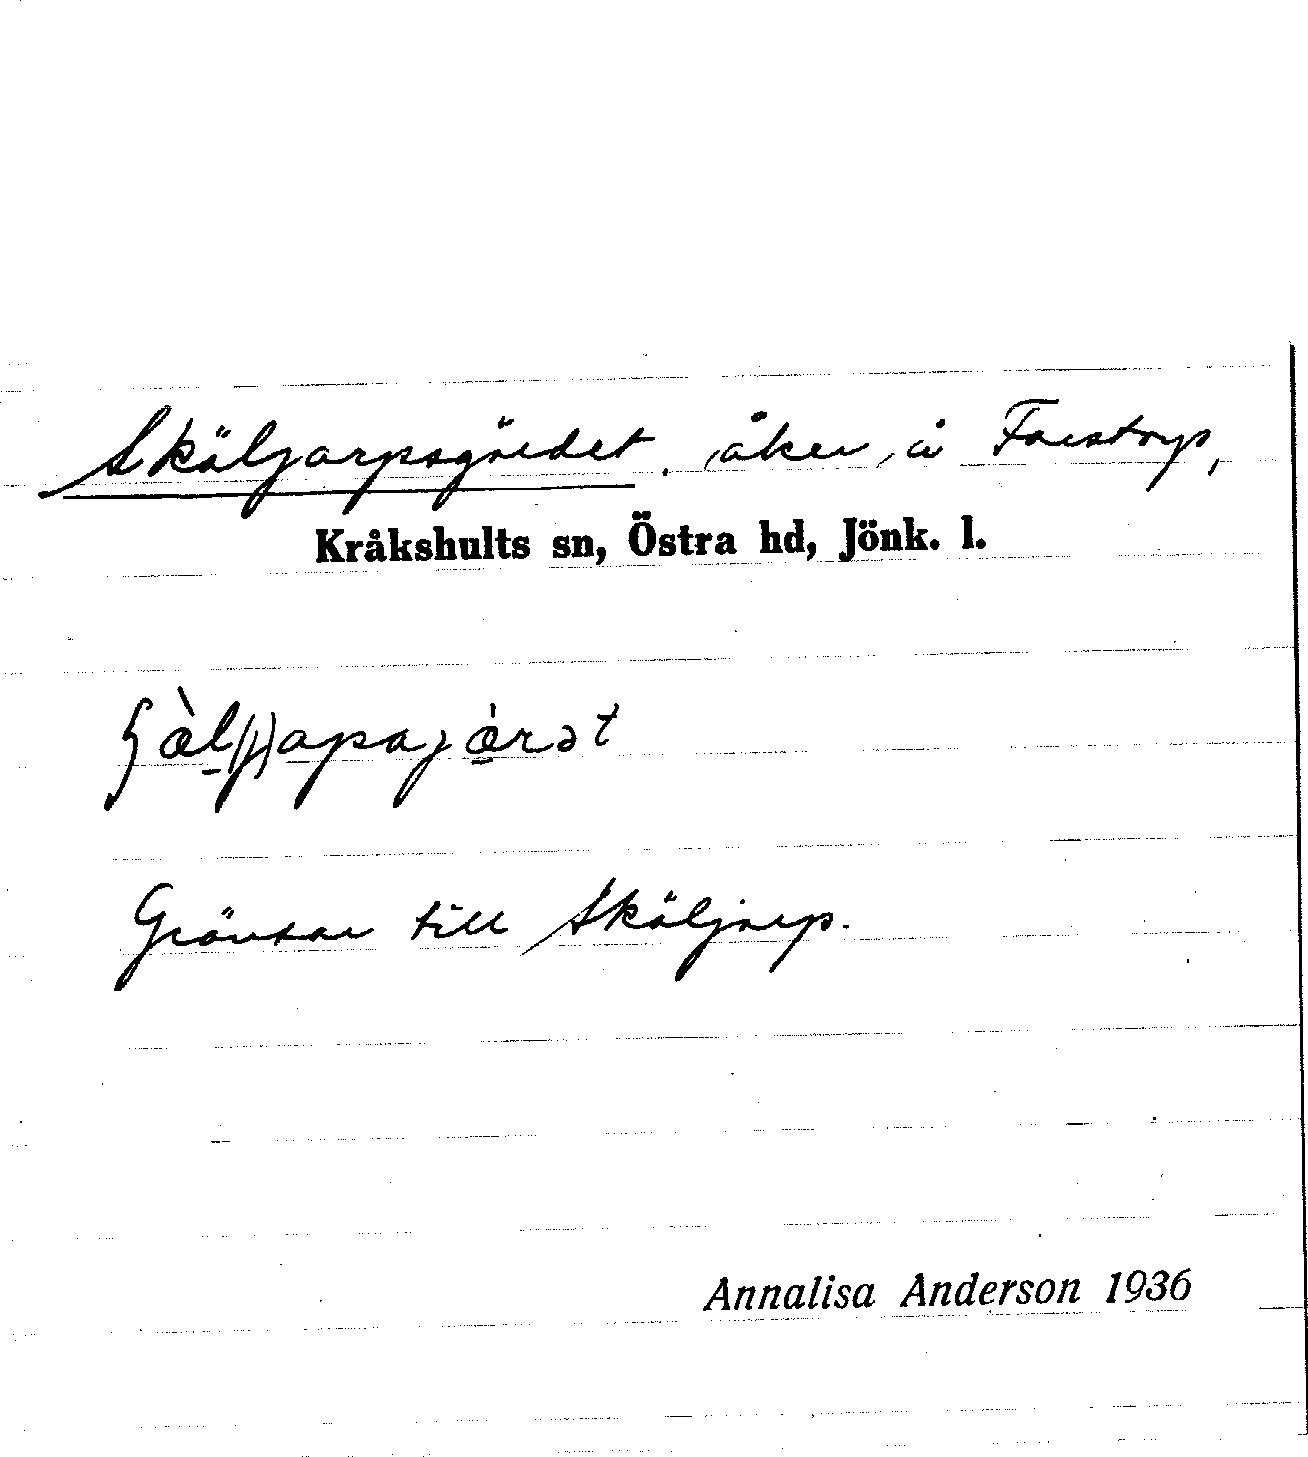 Skäljarpsgärdet, åker å Farstorp,
Kråkshults sn, Östra hd, Jönk. l.
Gränsar till Skäljarp.
Annalisa Anderson 1936